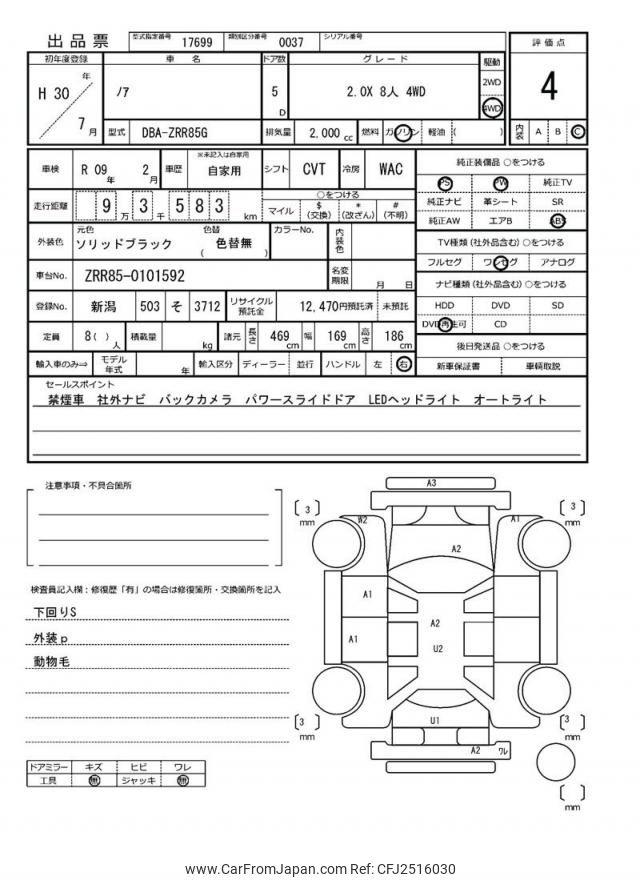 出品票 型式指定番号 17699 類別区分番号 0037 シリアル番号
評価点
初年度登録 車名 ドア数 グレード 駆動
H 30 年 7 月 ノア 5 D 2.0X 8人 4WD 2WD 4WD 4
型式 DBA-ZRR85G 排気量 2,000 cc 燃料 ガソリン 軽油 ( ) 内装 A B C
車検 R 09 年 2 月 車歴 ※未記入は自家用 自家用 シフト CVT 冷房 WAC
純正装備品 ○をつける
PS PW 純正TV
純正ナビ 革シート SR
純正AW エアB ABS
走行距離 9 万 3 千 5 8 3 km
○をつける
マイル $ (交換) * (改ざん) # (不明)
外装色 元色 ソリッドブラック 色替 ( 色替無 ) カラーNo. 内装色
TV種類 (社外品含む) ○をつける
フルセグ ワンセグ アナログ
車台No. ZRR85-0101592 名変期限 月 日
ナビ種類 (社外品含む) ○をつける
HDD DVD SD
DVD再生可 CD
登録No. 新潟 503 そ 3712 リサイクル預託金 12,470円預託済 未預託
定員 8( ) 人 積載量 kg 諸元 長さ 469 cm 幅 169 cm 高さ 186 cm
後日発送品 ○をつける
新車保証書 車輌取説
輸入車のみ⇒ モデル年式 年 輸入区分 ディーラー 並行 ハンドル 左 右
セールスポイント
禁煙車 社外ナビ バックカメラ パワースライドドア LEDヘッドライト オートライト
注意事項・不具合箇所
検査員記入欄：修復歴「有」の場合は修復箇所・交換箇所を記入
下回りS
外装p
動物毛
ドアミラー キズ ヒビ ワレ
工具 無 ジャッキ 無
A3
[ 3 ] mm
[ 3 ] mm
W2 A1
A2
A1
A2
A1
U2
[ 3 ] mm
[ 3 ] mm
U1
A2 ワレ
[ ] mm
www.CarFromJapan.com Ref: CFJ2516030